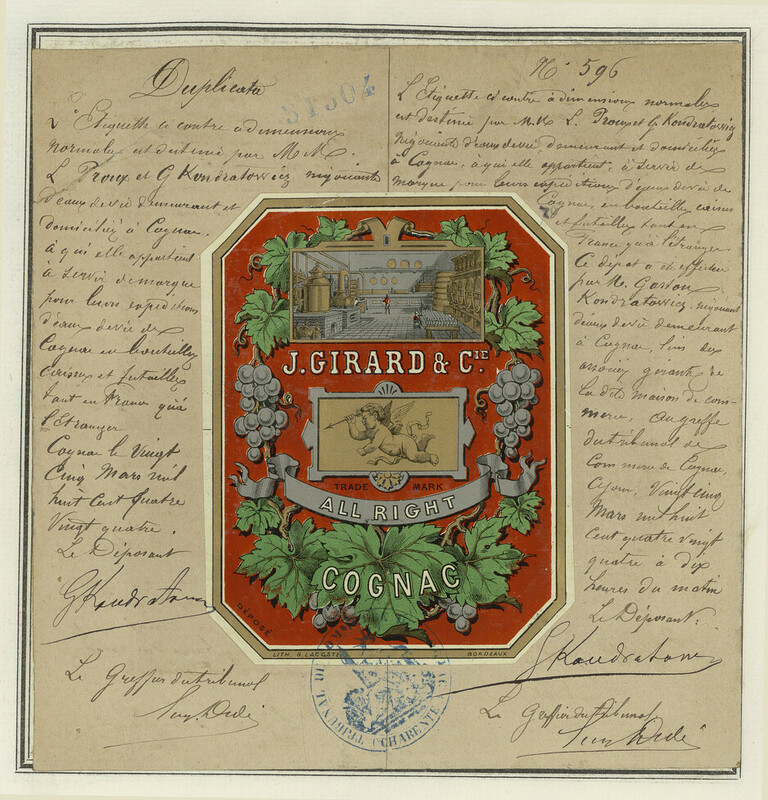 Duplicata
51304
L'Etiquette ci contre à dimensions
normales est destinée par M.M.
L Proux et G Kondratowicz négociants
d'eaux de vie demeurant et
domiciliés à Cognac,
à qui elle appartient
à servir de marque
pour leurs expéditions
d'eaux de vie de
Cognac en bouteilles
caisses et futailles
tant en France qu'à
l'Etranger
Cognac le Vingt
Cinq Mars mil
huit Cent quatre
Vingt quatre.
Le Déposant
G Kondratowicz
Le Greffier du tribunal
N° 596
L'Etiquette ci contre à dimensions normales
est destinée par M.M. L. Proux et G Kondratowicz
négociants d'eaux de vie, demeurant et domiciliés
à Cognac, à qui elle appartient, à servir de
marque pour leurs expéditions d'eaux de vie de
Cognac, en bouteilles caisses
et futailles tant en
France qu'à l'étranger.
Ce dépot a été effectué
par M. Gaston
Kondratowicz négociant
d'eaux de vie demeurant
à Cognac, l'un des
associés gérants de
la dite maison de com-
merce, au greffe
du tribunal de
Commerce de Cognac,
Cejour, Vingt cinq
Mars mil huit
Cent quatre vingt
quatre à dix
heures du matin
Le Déposant:
G Kondratowicz
Le Greffier du Tribunal
J. GIRARD & CIE.
TRADE MARK
ALL RIGHT
COGNAC
DÉPOSÉ
LITH. G. LACOSTE BORDEAUX
TRIBUNAL DE COMMERCE
CHARENTE